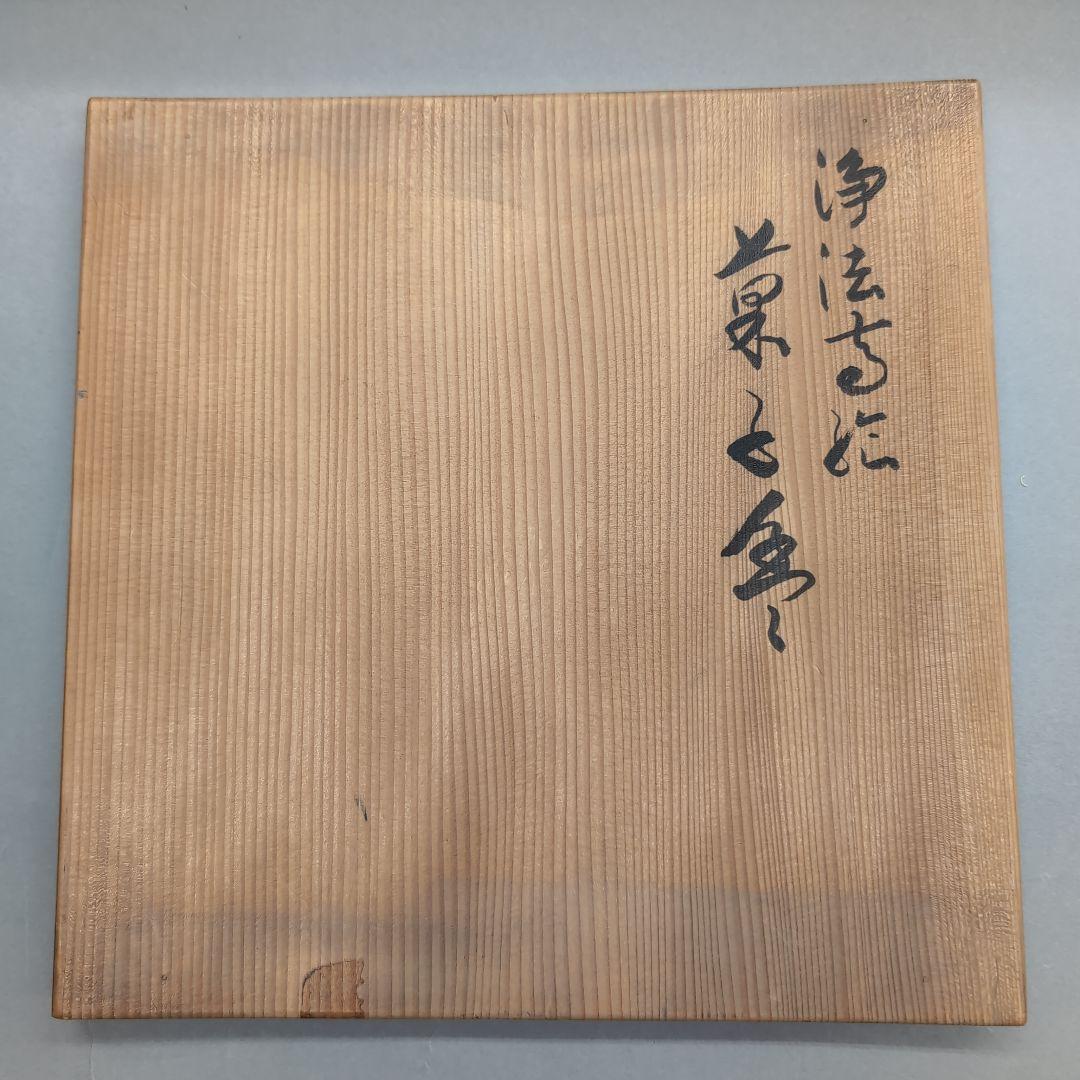 浄法寺絵
菓子盆